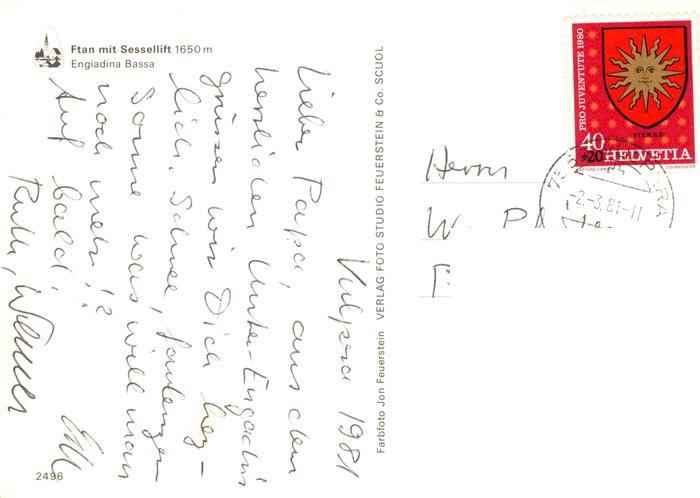 Ftan mit Sessellift 1650 m
Engiadina Bassa
Vulpera 1981
Lieber Papa, aus dem
herzlichen Unter-Engadin
grüssen wir Dich herz-
lich. Schnee, faulenzen
Sonne was will man
noch mehr!?
Auf bald!
Ruth, Werner
2496
Farbfoto Jon Feuerstein VERLAG FOTO STUDIO FEUERSTEIN & Co. SCUOL
PRO JUVENTUTE 1980
SIERRE
40
+20 HELVETIA
COURVOISIER
-2.-3.81-11
Herrn
W. P
F